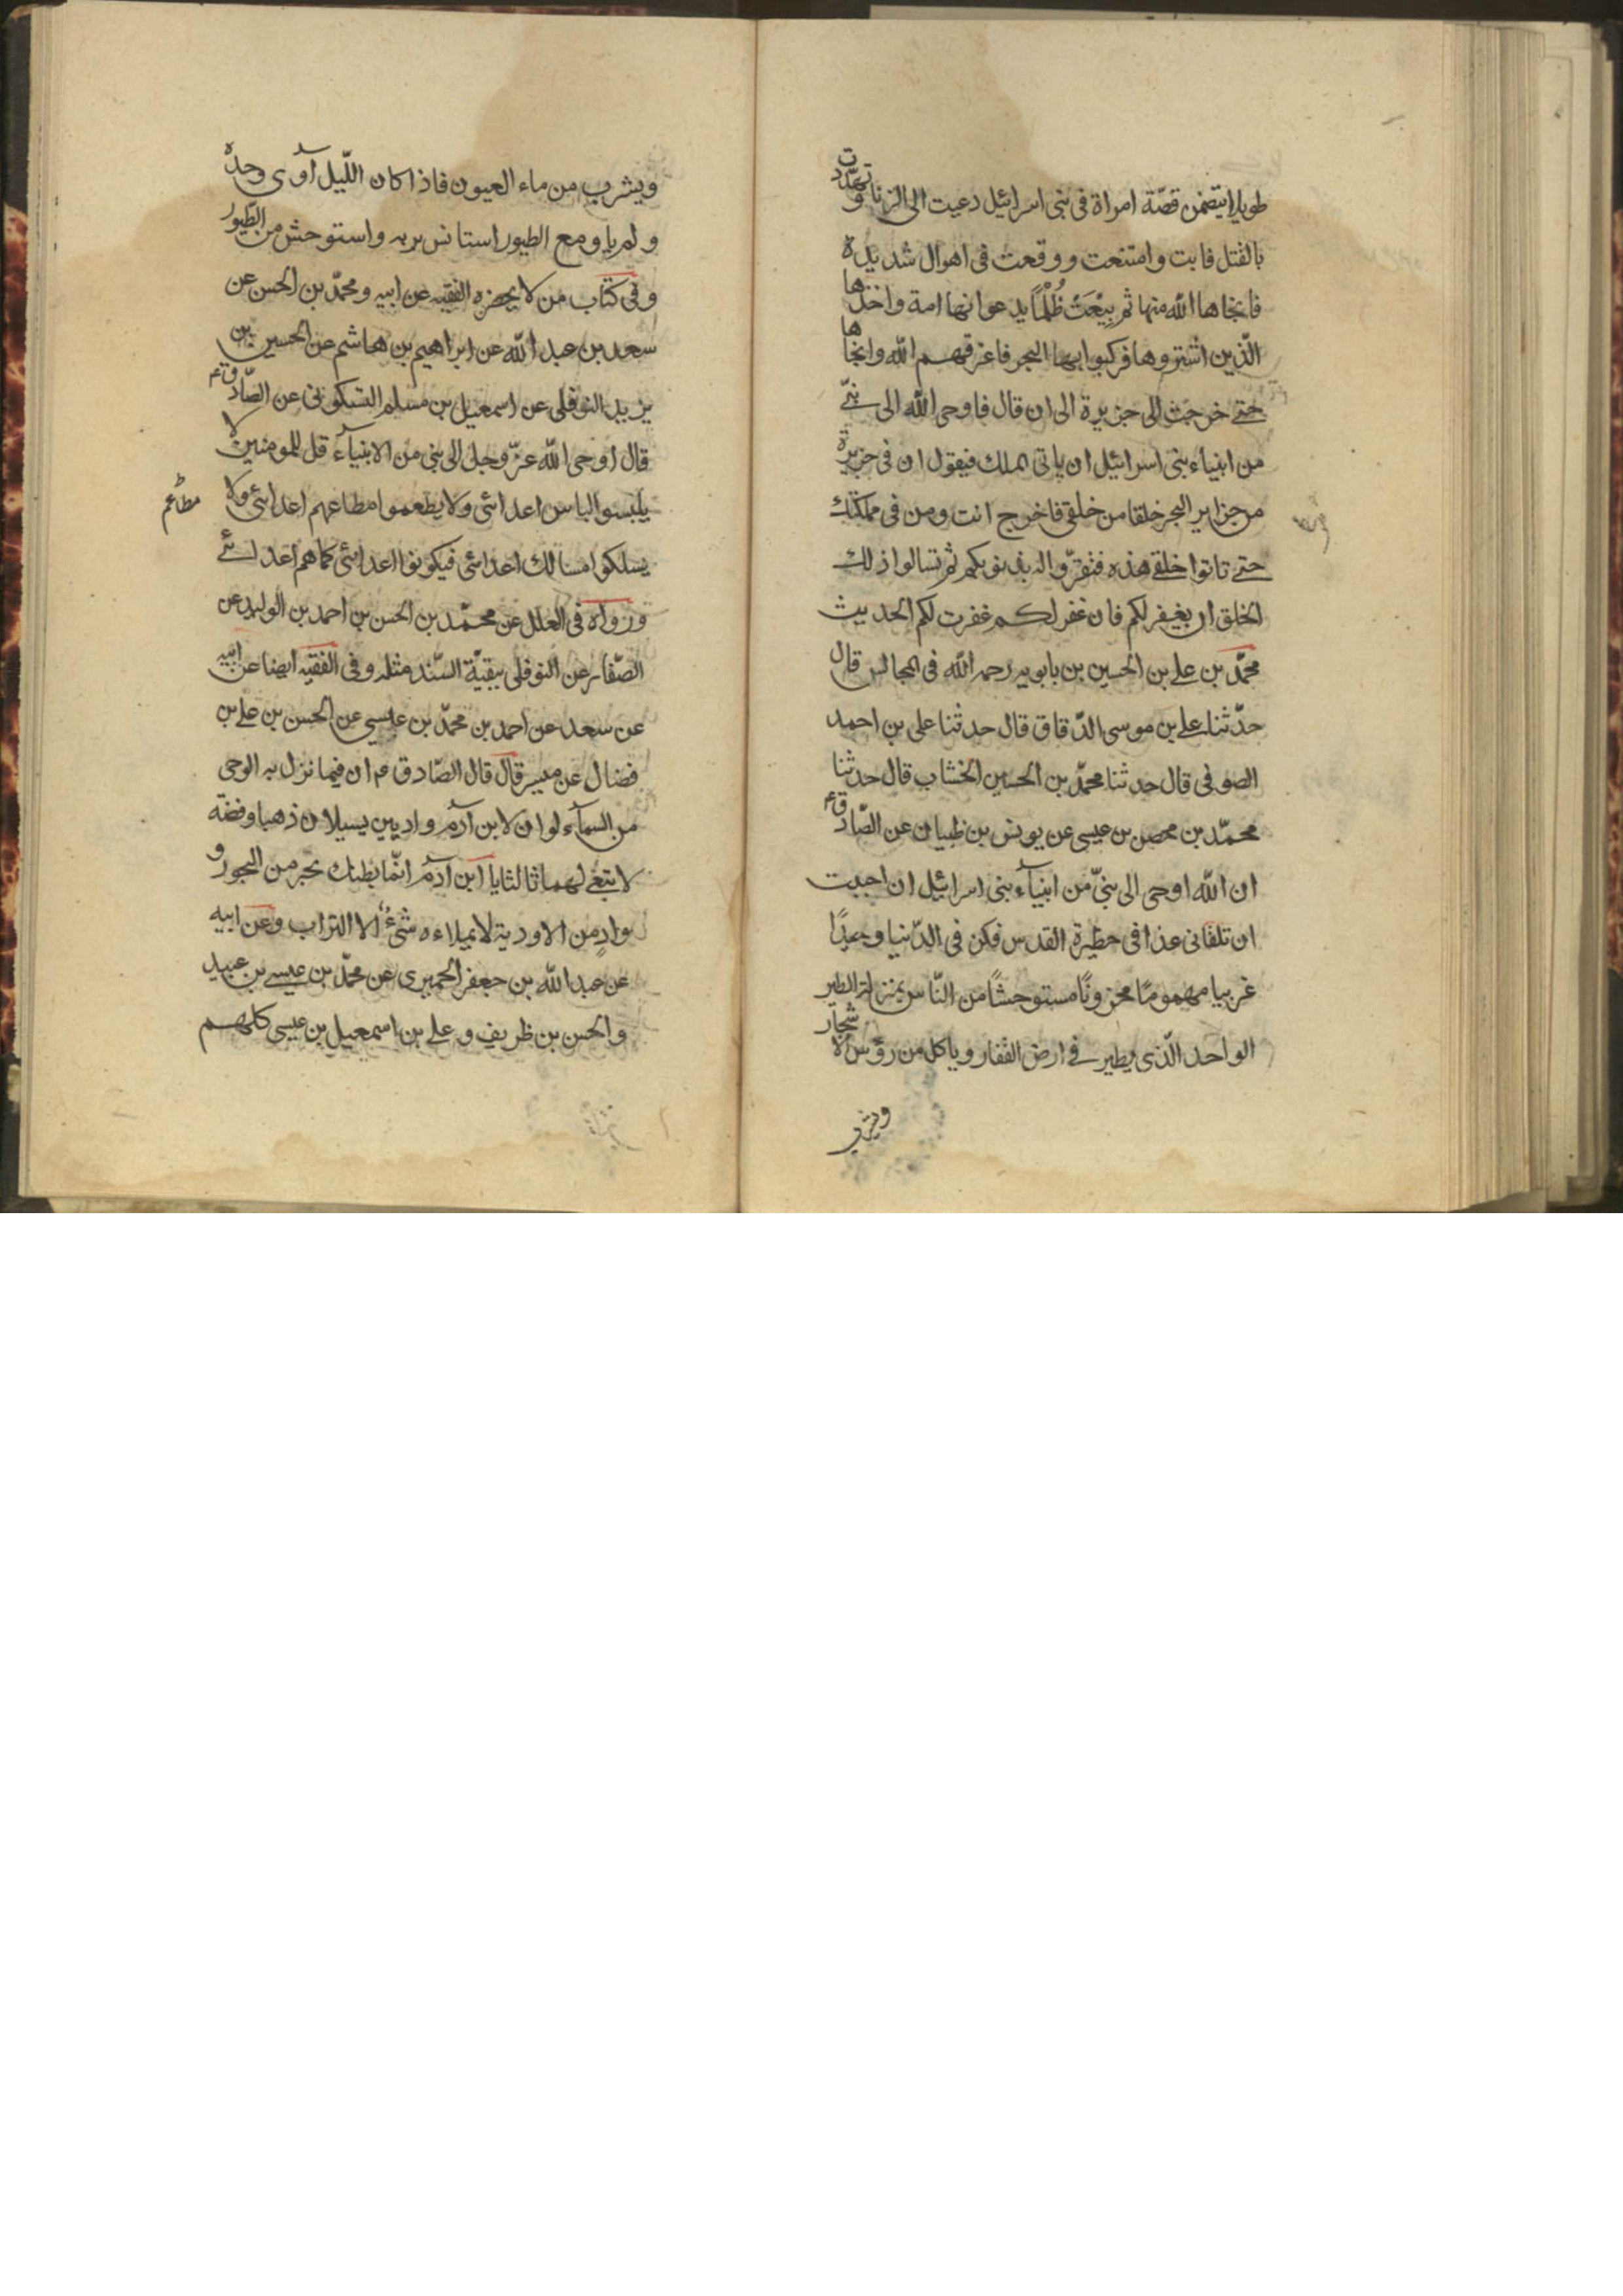 طويلا يتضمن قصّة امراة في بني اسرائيل دعيت الى الزنا وتهدّدت
بالقتل فابت وامتنعت ووقعت في اهوال شديدة
فانجاها الله منها ثم بِيْعَتْ ظُلْمًا بدعوا انها امة واخذها
الّذين اشتروها فركبوا بها البحر فاغرقهم الله وانجاها
حتى خرجت الى جزيرة الى ان قال فاوحى الله الى نبيّ
من انبياء بني اسرائيل ان ياتى الملك فيقول ان في جزيرة
من جزاير البحر خلقا من خلقي فاخرج انت ومن في مملكتك
حتى تاتوا خلقي هذه فتقرّوا له بذنوبكم ثم تسالوا ذلك
الخلق ان يغفر لكم فان غفر لكم غفرت لكم الحديث
محمّد بن على بن الحسين بن بابويه رحمه الله في المجالس قال
حدّثنا على بن موسى الدّقاق قال حدثنا على بن احمد
الصوفى قال حدثنا محمّد بن الحسين الخشاب قال حدثنا
محمّد بن محصن بن عيسى عن يونس بن ظبيان عن الصّادق ع
ان الله اوحى الى نبىّ من انبيآء بنى اسرائيل ان احببت
ان تلقانى غدا في حظيرة القدس فكن في الدّنيا وحيدًا
غريبا مهمومًا محزونًا مستوحشًا من النّاس بمنزلة الطير
الواحد الّذى يطير في ارض القفار وياكل من رؤس الاشجار
ويشرب
ويشرب من ماء العيون فاذا كان اللّيل آوى وحده
ولم ياو مع الطيور استانس بربه واستوحش من الطّيور
وفى كتاب من لا يحضره الفقيه عن ابيه ومحمّد بن الحسن عن
سعد بن عبد الله عن ابراهيم بن هاشم عن الحسين بن
يزيد النوفلى عن اسمعيل بن مسلم السّكونى عن الصّادق ع
قال اوحى الله عزّ وجل الى نبى من الانبيآء قل للمومنين لا
يلبسوا لباس اعدائى ولا يطعموا مطاعهم اعدائى ولا
مطاعم
يسلكوا مسالك اعدائى فيكونوا اعدائى كما هم اعدائى
ورواه فى العلل عن محمّد بن الحسن بن احمد بن الوليد عن
الصّفار عن النوفلى ببقيّة السّند مثله وفى الفقيه ايضا عن ابيه
عن سعد عن احمد بن محمّد بن عيسى عن الحسن بن على بن
فضال عن ميسر قال قال الصّادق ع ان فيما نزل به الوحى
من السمآء لو ان لابن آدم واديين يسيلان ذهبا وفضة
لابتغى لهما ثالثا يا ابن آدم انّما بطنك بحر من البحور و
وادٍ من الاودية لا يملاءه شىءٌ الا التراب وعن ابيه
عن عبد الله بن جعفر الحميرى عن محمّد بن عيسى بن عبيد
والحسن بن ظريف وعلى بن اسمعيل بن عيسى كلهم